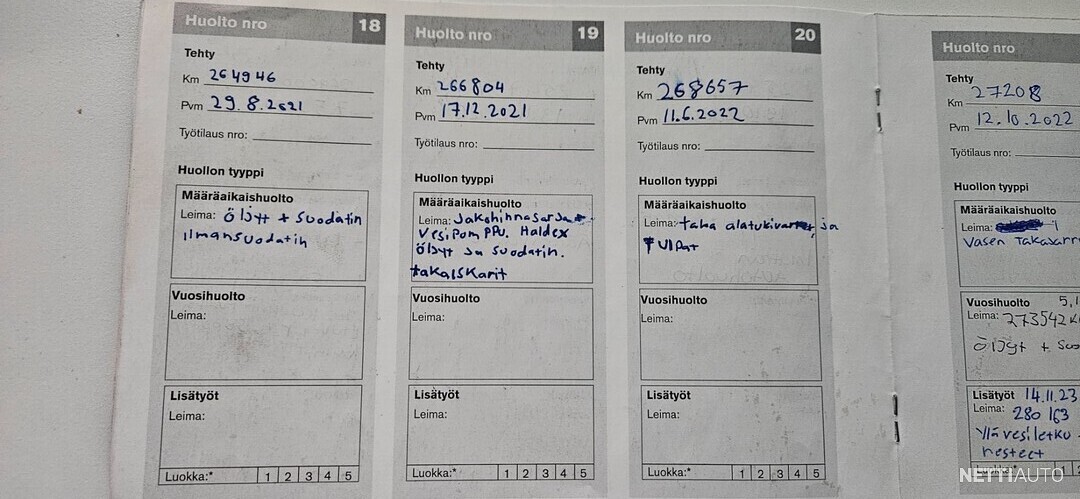 Huolto nro 18
Tehty
Km 264946
Pvm 29.8.2021
Työtilaus nro:
Huollon tyyppi
Määräaikaishuolto
Leima: öljyt + suodatin
ilmansuodatin
Vuosihuolto
Leima:
Lisätyöt
Leima:
Luokka:* 1 2 3 4 5
Huolto nro 19
Tehty
Km 266804
Pvm 17.12.2021
Työtilaus nro:
Huollon tyyppi
Määräaikaishuolto
Leima: Jakohihnasarja +
Vesipomppu. Haldex
öljyt ja suodatin.
takaiskarit
Vuosihuolto
Leima:
Lisätyöt
Leima:
Luokka:* 1 2 3 4 5
Huolto nro 20
Tehty
Km 268657
Pvm 11.6.2022
Työtilaus nro:
Huollon tyyppi
Määräaikaishuolto
Leima: taka alatukivarret ja
Vuosihuolto
Leima:
Lisätyöt
Leima:
Luokka:* 1 2 3 4 5
Huolto nro
Tehty
Km 27208
Pvm 12.10.2022
Työtilaus nro:
Huollon tyyppi
Määräaikaishuolto
Leima:
Vasen Takajarr
Vuosihuolto 5.1
Leima: 273542 K
öljyt + suo
Lisätyöt 14.11.23
Leima: 280 163
Ylävesiletku -
nesteet
Luokka:*
NETTIAUTO